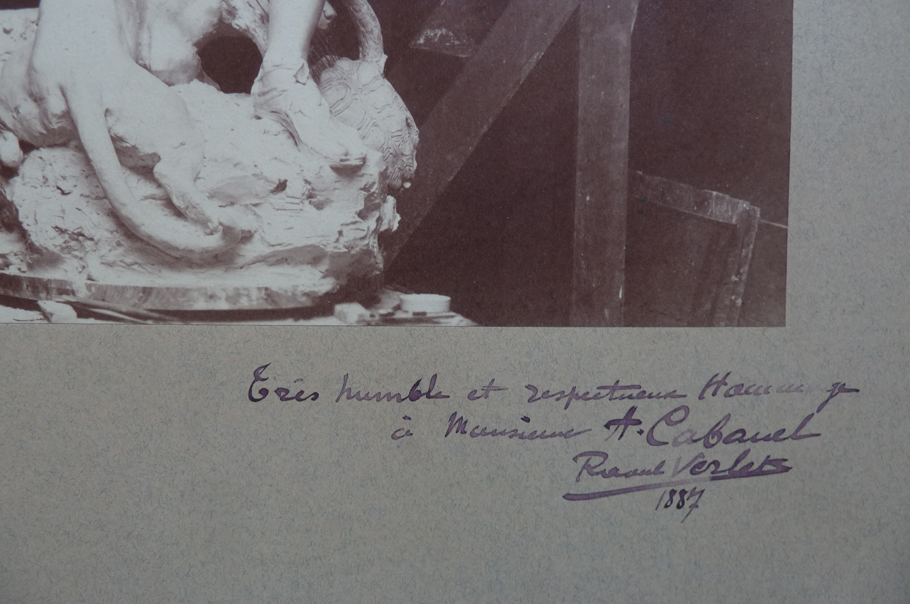 Très humble et respectueux Hommage
à Monsieur A. Cabanel
Raoul Verlet
1887